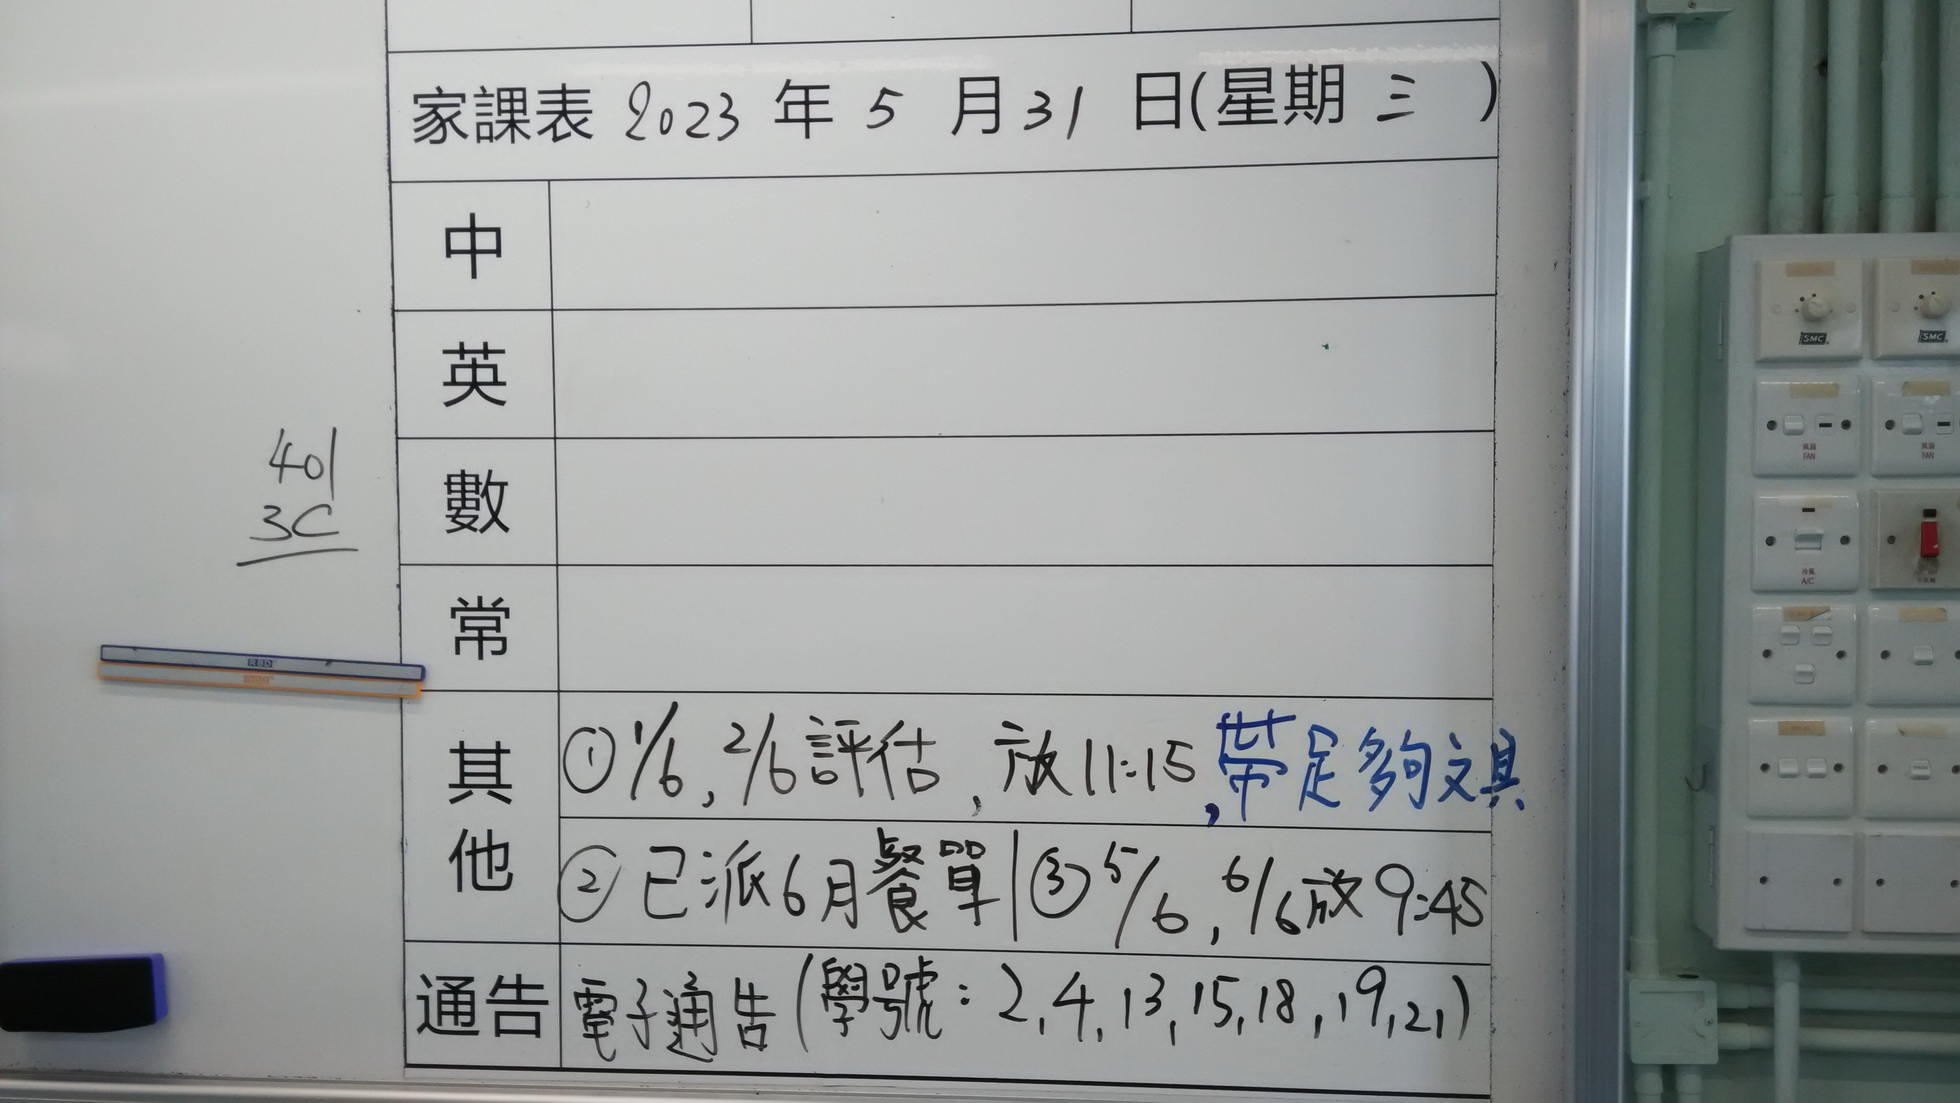 家課表 2023 年 5 月 31 日(星期 三 )
中
英
數
常
其他
①1/6, 2/6評估, 放11:15, 帶足夠文具
②已派6月餐單|③5/6, 6/6放9:45
通告
電子通告(學號: 2,4,13,15,18,19,21)
401
3C
RBD
SMC
SMC
風扇
FAN
風扇
FAN
冷氣
A/C